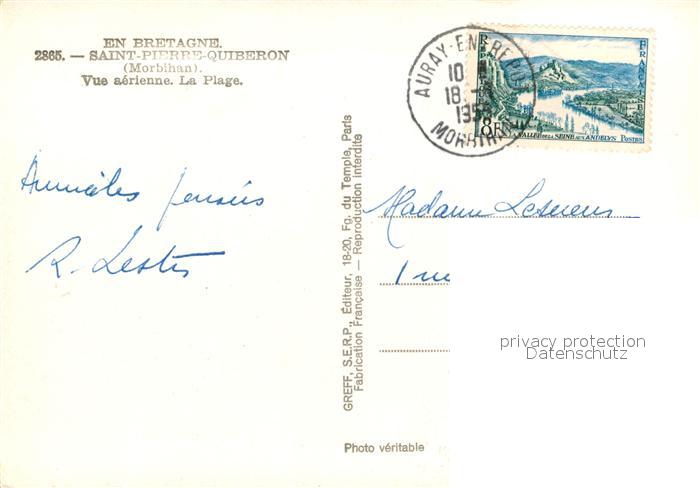 EN BRETAGNE.
2865. — SAINT-PIERRE-QUIBERON
(Morbihan).
Vue aérienne. La Plage.
Amicales pensées
R.
GREFF, S.E.R.P., Éditeur, 18-20, Fg. du Temple, Paris
Fabrication Française — Reproduction interdite
Photo véritable
AURAY-EN
10
18
MORBIHAN
8F
LA VALLÉE DE LA SEINE AUX ANDELYS POSTES
Madame
1 rue
privacy protection
Datenschutz